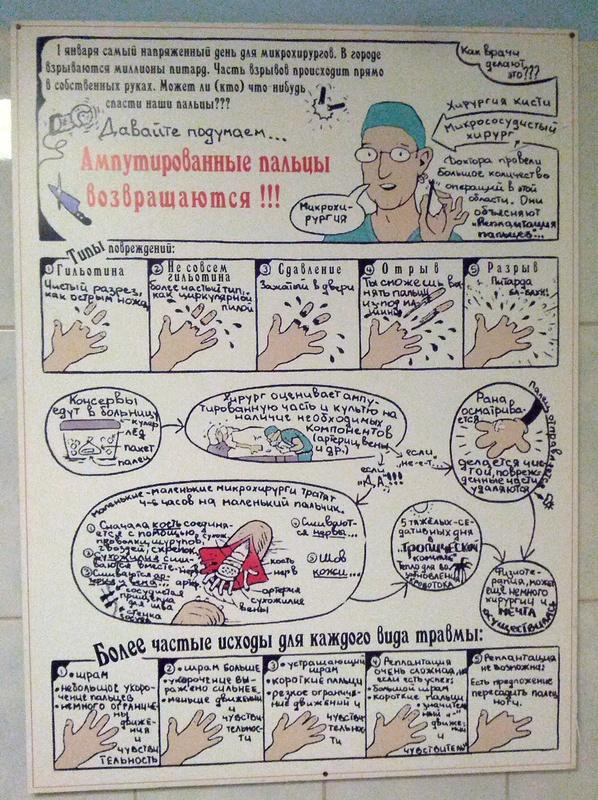 1 января самый напряженный день для микрохирургов. В городе
взрываются миллионы питард. Часть взрывов происходит прямо
в собственных руках. Может ли (кто) что нибудь
спасти наши пальцы???
Как врачи
делают
это???
Давайте подумаем...
Ампутированные пальцы
возвращаются !!!
Хирургия кисти
Микрососудистый
хирург
Доктора провели
большое количество
операций в этой
области. Они
объясняют
"Реплантация
пальцев...
Микрохи-
рургия
Типы повреждений:
1 Гильотина
Чистый разрез,
как острым ножом
2 Не совсем
гильотина
более частый тип,
как циркулярной
пилой
3 Сдавление
Зажатый в двери
4 Отрыв
Ты сможешь
5 Разрыв
Питарда
Консервы
едут в больницу
кулер
лёд
пакет
палец
Хирург оценивает ампу-
тированную часть и культю на
наличие необходимых
компонентов
(артерии, вены
и др.)
если
"не-е-т...
если
"Д.А"!!!
Рана
осматрива-
ется
делается чис-
той, повреж-
денные части
удаляются
маленькие-маленькие микрохирурги тратят
4-6 часов на маленький пальчик.
1 Сначала кость соединя-
ется с помощью
проволоки, шурупов,
гвоздей, скрепок.
2 Сухожилия сши-
ваются вместе.
3 Сшиваются ар-
сосудистая
для шва
4 Сшивают-
ся нервы...
5 Шов
кожи...
кость
нерв
артерия
сухожилие
вены
5 тяжёлых-се-
дативных дня
в Тропической
комнате
Тепло для во
кровотока
Физиоте-
рапия, может
ещё немного
хирургии и
МЕЧТА
осуществилась
Более частые исходы для каждого вида травмы:
1 • шрам
• небольшое укоро-
чение пальцев
• немного ограниче-
ны
движе-
ния
и
чувстви
тельность
2 • шрам больше
• укорочение вы-
ражено сильнее
• меньше движений
и
чувстви-
тельнос-
ти
3 • устрашающий
шрам
• короткие пальцы
• резкое ограниче-
ние движений и
чувстви-
тельнос
ти
4 Реплантация
очень сложная, но
если есть успех:
• большой шрам
• короткие пальцы
движе-
и
чувствитель
5 Реплантация
не возможна:
Есть предложение
пересадить палец
ноги.